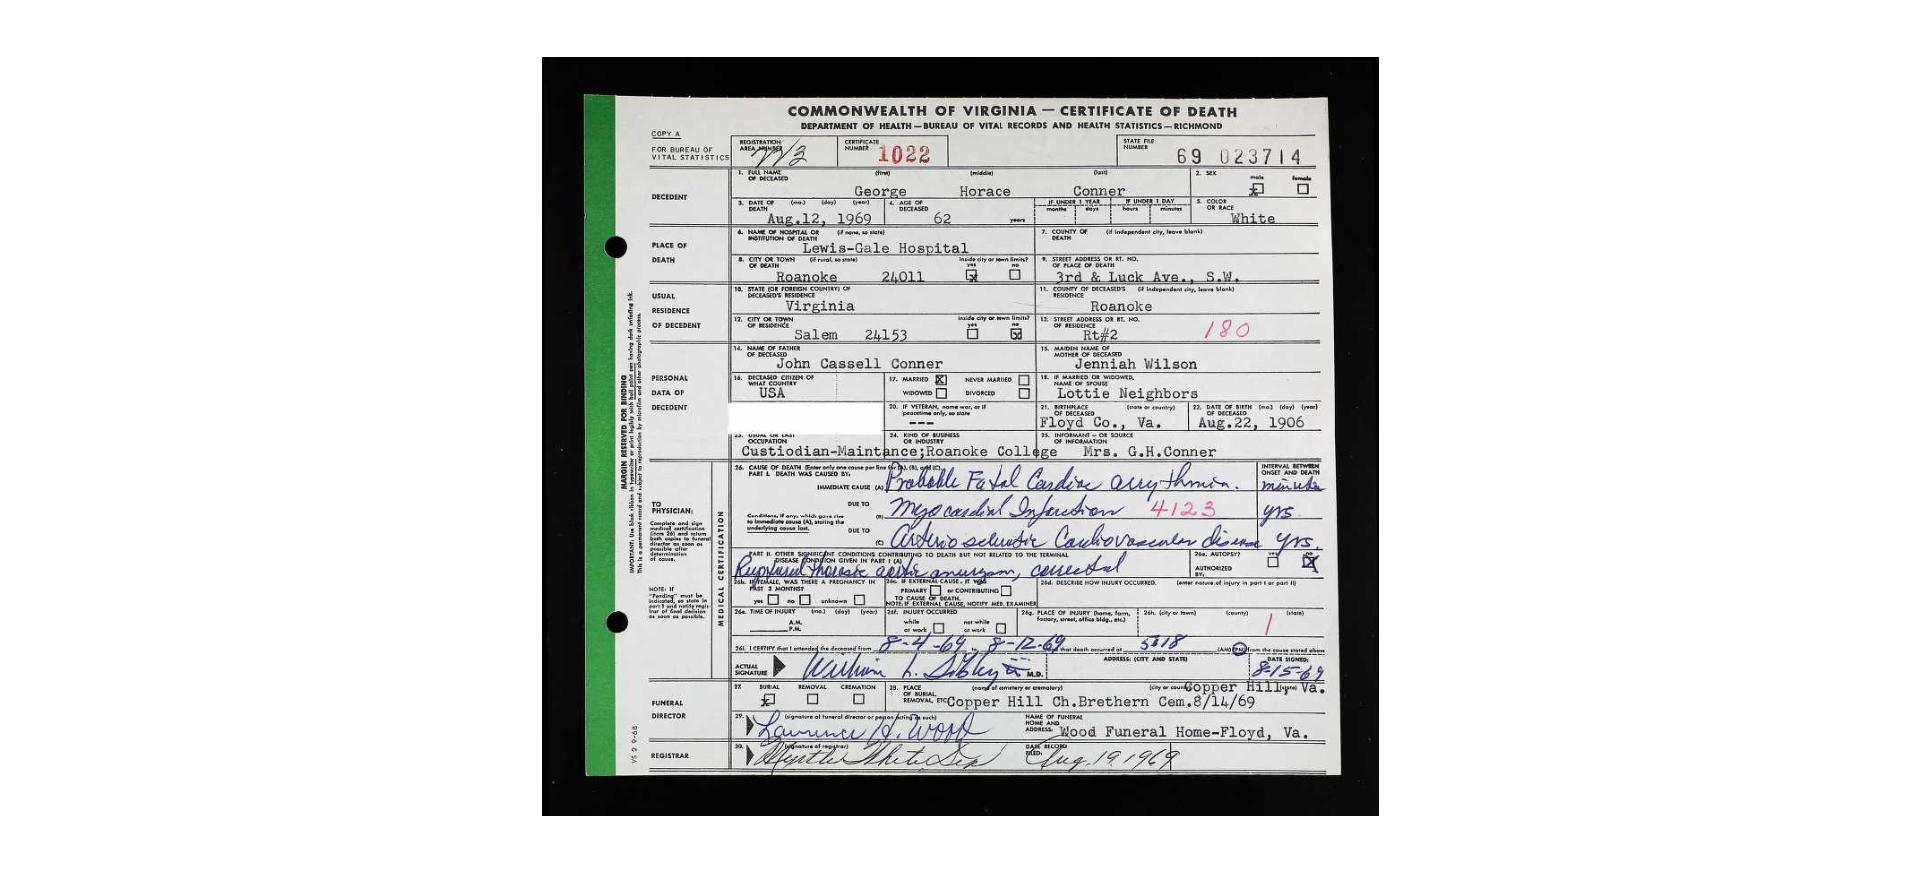 COMMONWEALTH OF VIRGINIA — CERTIFICATE OF DEATH
DEPARTMENT OF HEALTH — BUREAU OF VITAL RECORDS AND HEALTH STATISTICS — RICHMOND
COPY A
FOR BUREAU OF VITAL STATISTICS
REGISTRATION AREA NUMBER
CERTIFICATE NUMBER 1022
STATE FILE NUMBER 69 023714
DECEDENT
1. FULL NAME OF DECEASED (first) (middle) (last)
George Horace Conner
2. SEX male x female
3. DATE OF DEATH (mo.) (day) (year)
Aug.12, 1969
4. AGE OF DECEASED 62 years
IF UNDER 1 YEAR months days
IF UNDER 1 DAY hours minutes
5. COLOR OR RACE White
PLACE OF DEATH
6. NAME OF HOSPITAL OR INSTITUTION OF DEATH (if none, so state)
Lewis-Gale Hospital
7. COUNTY OF DEATH (if independent city, leave blank)
8. CITY OR TOWN OF DEATH (if rural, so state)
Roanoke 24011
inside city or town limits? yes x no
9. STREET ADDRESS OR RT. NO. OF PLACE OF DEATH
3rd & Luck Ave., S.W.
USUAL RESIDENCE OF DECEDENT
10. STATE (OR FOREIGN COUNTRY) OF DECEASED'S RESIDENCE
Virginia
11. COUNTY OF DECEASED'S RESIDENCE (if independent city, leave blank)
Roanoke
12. CITY OR TOWN OF RESIDENCE
Salem 24153
inside city or town limits? yes no x
13. STREET ADDRESS OR RT. NO. OF RESIDENCE
Rt#2 180
PERSONAL DATA OF DECEDENT
14. NAME OF FATHER OF DECEASED
John Cassell Conner
15. MAIDEN NAME OF MOTHER OF DECEASED
Jenniah Wilson
16. DECEASED CITIZEN OF WHAT COUNTRY
USA
17. MARRIED X NEVER MARRIED
WIDOWED DIVORCED
18. IF MARRIED OR WIDOWED, NAME OF SPOUSE
Lottie Neighbors
20. IF VETERAN, name war, or if peacetime only, so state
---
21. BIRTHPLACE OF DECEASED (state or country)
Floyd Co., Va.
22. DATE OF BIRTH OF DECEASED (mo.) (day) (year)
Aug.22, 1906
23. USUAL OR LAST OCCUPATION
24. KIND OF BUSINESS OR INDUSTRY
25. INFORMANT — OR SOURCE OF INFORMATION
Custiodian-Maintance;Roanoke College Mrs. G.H.Conner
MARGIN RESERVED FOR BINDING
TO PHYSICIAN:
Complete and sign medical certification (item 26) and return both copies to funeral director as soon as possible after determination of cause.
NOTE: If "Pending" must be indicated, so state in part I and notify registrar of final decision as soon as possible.
MEDICAL CERTIFICATION
26. CAUSE OF DEATH (Enter only one cause per line for (A), (B), and (C).
PART I. DEATH WAS CAUSED BY:
INTERVAL BETWEEN ONSET AND DEATH
IMMEDIATE CAUSE (A) Probable Fatal Cardiac arrythmia. minutes
Conditions, if any, which gave rise to immediate cause (A), stating the underlying cause last.
DUE TO (B) Myocardial Infarction 4123 yrs.
DUE TO (C) Arteriosclerotic Cardiovascular disease yrs.
PART II. OTHER SIGNIFICANT CONDITIONS CONTRIBUTING TO DEATH BUT NOT RELATED TO THE TERMINAL DISEASE CONDITION GIVEN IN PART I (A)
Ruptured thoracic aortic aneurysm, corrected
26a. AUTOPSY? yes no X
AUTHORIZED BY:
26b. IF FEMALE, WAS THERE A PREGNANCY IN PAST 3 MONTHS?
yes no unknown
26c. IF EXTERNAL CAUSE, IT WAS
PRIMARY or CONTRIBUTING
TO CAUSE OF DEATH.
NOTE: IF EXTERNAL CAUSE, NOTIFY MED. EXAMINER
26d. DESCRIBE HOW INJURY OCCURRED. (enter nature of injury in part I or part II)
26e. TIME OF INJURY (mo.) (day) (year)
A.M.
P.M.
26f. INJURY OCCURRED
while at work not while at work
26g. PLACE OF INJURY (home, farm, factory, street, office bldg., etc.)
26h. (city or town) (county) (state)
1
26i. I CERTIFY that I attended the deceased from 8-4-69 to 8-12-69 that death occurred at 5:18 (AM) (PM) from the cause stated above
ACTUAL SIGNATURE William L. Sibley M.D.
ADDRESS: (CITY AND STATE)
DATE SIGNED: 8-15-69
FUNERAL DIRECTOR
27. BURIAL x REMOVAL CREMATION
28. PLACE OF BURIAL, REMOVAL, ETC. (name of cemetery or crematory) (city or county) (state)
Copper Hill, Va.
Copper Hill Ch.Brethern Cem.8/14/69
29. (signature of funeral director or person acting as such)
Lawrence H. Wood
NAME OF FUNERAL HOME AND ADDRESS: Wood Funeral Home-Floyd, Va.
REGISTRAR
30. (signature of registrar)
Myrtle White
DATE RECORD FILED: Aug. 19, 1969
VS 2 9-68